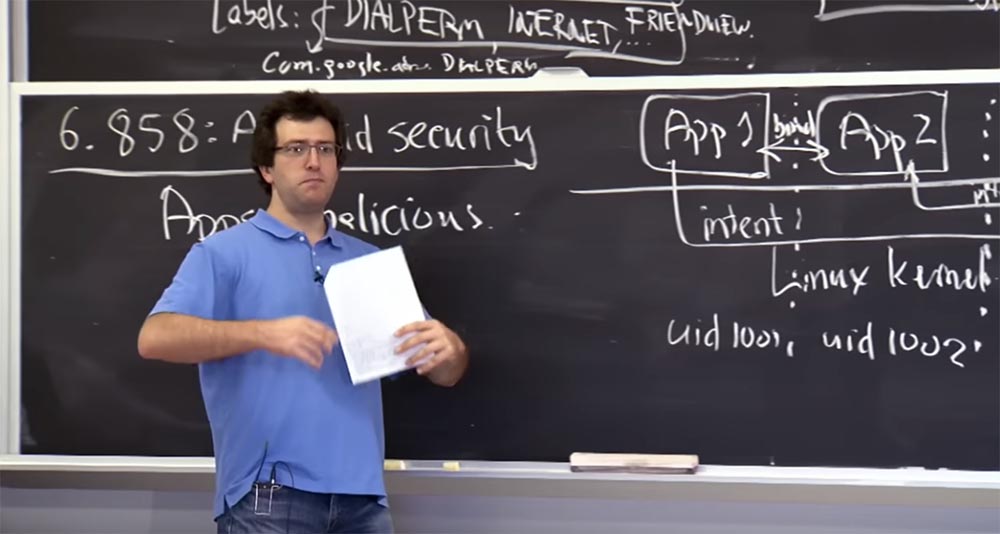 Labels: { DIALPERM, INTERNET, FRIENDVIEW.
com.google. DIALPERM
6.858: A id security
App elicious.
App 1 bind App 2
intent:
Linux kernel
uid 1001, uid 1002